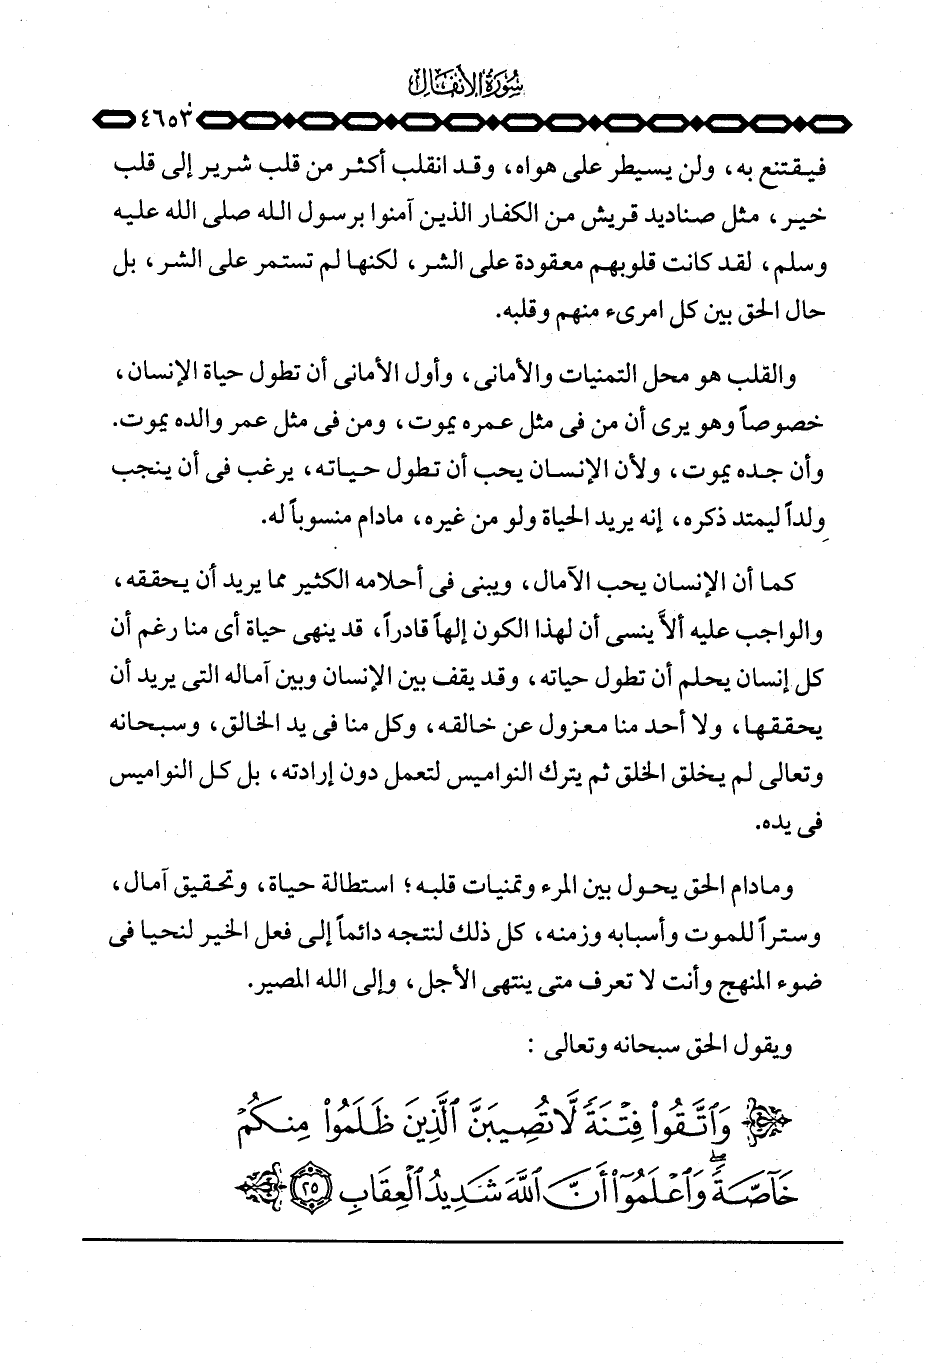 سُورَةُ الأَنفَالِ
٤٦٥٣
فيقتنع به، ولن يسيطر على هواه، وقد انقلب أكثر من قلب شرير إلى قلب
خير، مثل صناديد قريش من الكفار الذين آمنوا برسول الله صلى الله عليه
وسلم، لقد كانت قلوبهم معقودة على الشر، لكنها لم تستمر على الشر، بل
حال الحق بين كل امرىء منهم وقلبه.
والقلب هو محل التمنيات والأمانى، وأول الأمانى أن تطول حياة الإنسان،
خصوصاً وهو يرى أن من فى مثل عمره يموت، ومن فى مثل عمر والده يموت.
وأن جده يموت، ولأن الإنسان يحب أن تطول حياته، يرغب فى أن ينجب
ولداً ليمتد ذكره، إنه يريد الحياة ولو من غيره، مادام منسوباً له.
كما أن الإنسان يحب الآمال، ويبنى فى أحلامه الكثير مما يريد أن يحققه،
والواجب عليه ألاَّ ينسى أن لهذا الكون إلهاً قادراً، قد ينهى حياة أى منا رغم أن
كل إنسان يحلم أن تطول حياته، وقد يقف بين الإنسان وبين آماله التى يريد أن
يحققها، ولا أحد منا معزول عن خالقه، وكل منا فى يد الخالق، وسبحانه
وتعالى لم يخلق الخلق ثم يترك النواميس لتعمل دون إرادته، بل كل النواميس
فى يده.
ومادام الحق يحول بين المرء وتمنيات قلبه؛ استطالة حياة، وتحقيق آمال،
وستراً للموت وأسبابه وزمنه، كل ذلك لنتجه دائماً إلى فعل الخير لنحيا فى
ضوء المنهج وأنت لا تعرف متى ينتهى الأجل، وإلى الله المصير.
ويقول الحق سبحانه وتعالى :
وَٱتَّقُوا۟ فِتْنَةً لَّا تُصِيبَنَّ ٱلَّذِينَ ظَلَمُوا۟ مِنكُمْ
خَآصَّةً ۖ وَٱعْلَمُوٓا۟ أَنَّ ٱللَّهَ شَدِيدُ ٱلْعِقَابِ ٢٥